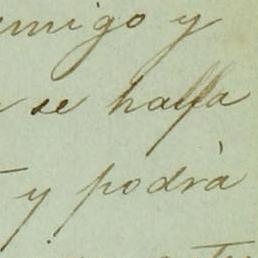 emigo y
se halla
y podrà